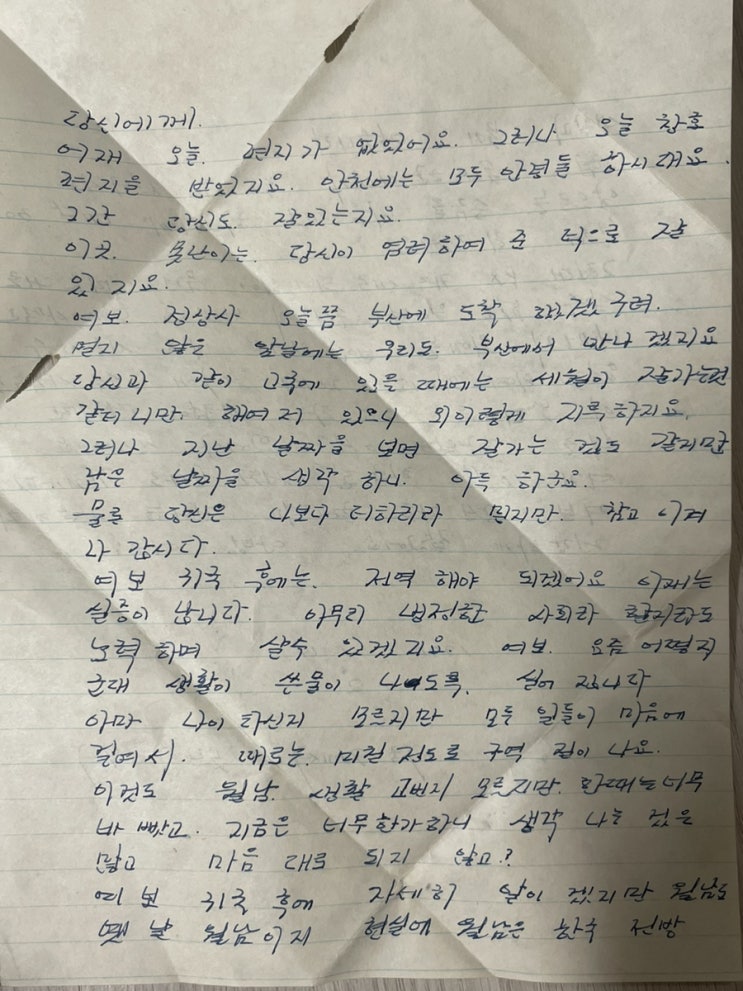 당신에게.
어재 오늘. 편지가 없었어요. 그러나 오늘 창호
편지을 받었지요. 안천에는 모두 안령들 하시대요.
그간 당신도. 잘있는지요.
이곳. 못난이는. 당신이 염려하여 준 덕으로 잘
있지요.
여보. 정상사 오늘쯤 부산에 도착 하겠구려.
멀지 않은 앞날에는 우리도. 부산에서 만나겠지요
당신과 같이 고국에 있을 때에는 세월이 잘가는것
같터니만. 해여저 있으니 외이렇게 지륵하지요.
그러나 지난 날짜을 보면 잘가는 것도 같지만
남은 날짜을 생각하니. 아득 하군요.
물론 당신은 나보다 더하리라 믿지만. 참고 이겨
나 갑시다.
여보 귀국 후에는. 전역 해야 되겠어요 이재는
실증이 납니다. 아무리 냉정한 사회라 할지라도
노력하며 살수 있겠지요. 여보. 요즘 어떻지
군대 생활이 쓴물이 나도록. 싫어 집니다
아마 나이 타신지 모르지만 모두 일들이 마음에
걸여서. 때로는. 미칠 정도로 구역 질이 나요.
이것도 월남. 생활 모르지만. 한때는 너무
바빴고. 지금은 너무 한가하니 생각 나는 것은
많고 마음 대로 되지 않고?
여보 귀국 후에 자세히 알이 겠지만 월남도
옛날 월남이지 현실에 월남은 한국 전방